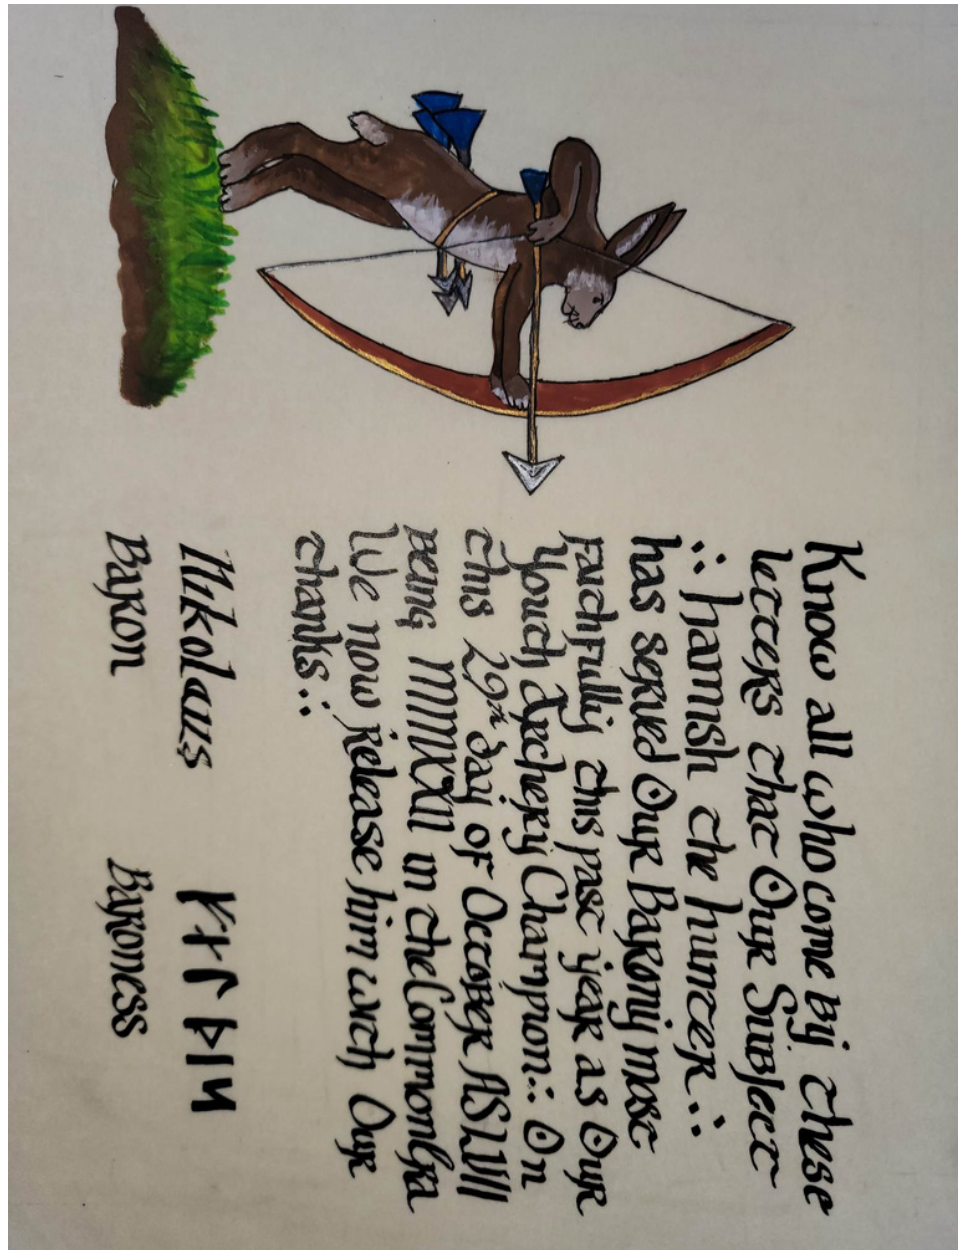 Know all who come By these
letters that Our Subject
∴ hamish the hunter ∴
has served Our Barony most
faithfully this past year as Our
Youth Archery Champion ∴ On
this 29th day of October AS LVII
being MMXXII in the Common Era
We now release him with Our
thanks ∴
Nikolaus
Baron Baroness